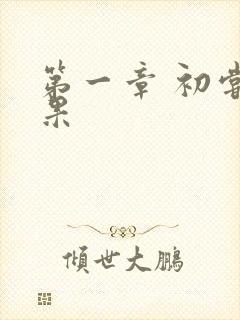 第一章 初尝
果
倾世大鹏